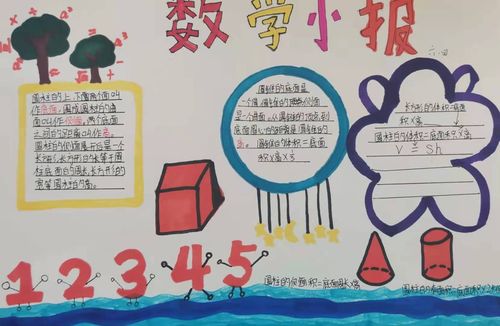 数学小报
六.四
圆柱的上、下面两个面叫
作底面,围成圆柱的曲
面叫作侧面,两个底面
之间的距离叫作高。
圆柱的侧面展开后是一个
长方形,长方形的长等于圆
柱底面的周长,长方形的
宽等圆柱的高。
圆锥的底面是
一个圆,圆锥的侧面
是一个曲面,从圆锥的顶点到
底面圆心的距离是圆锥的
高。圆锥的体积=底面
积×高×⅓
长方形的体积=底面
积×高
圆柱的体积=底面积×高
V=Sh
1 2 3 4 5
圆柱的侧面积=底面周长×高
圆柱的表面积=底面积×2+